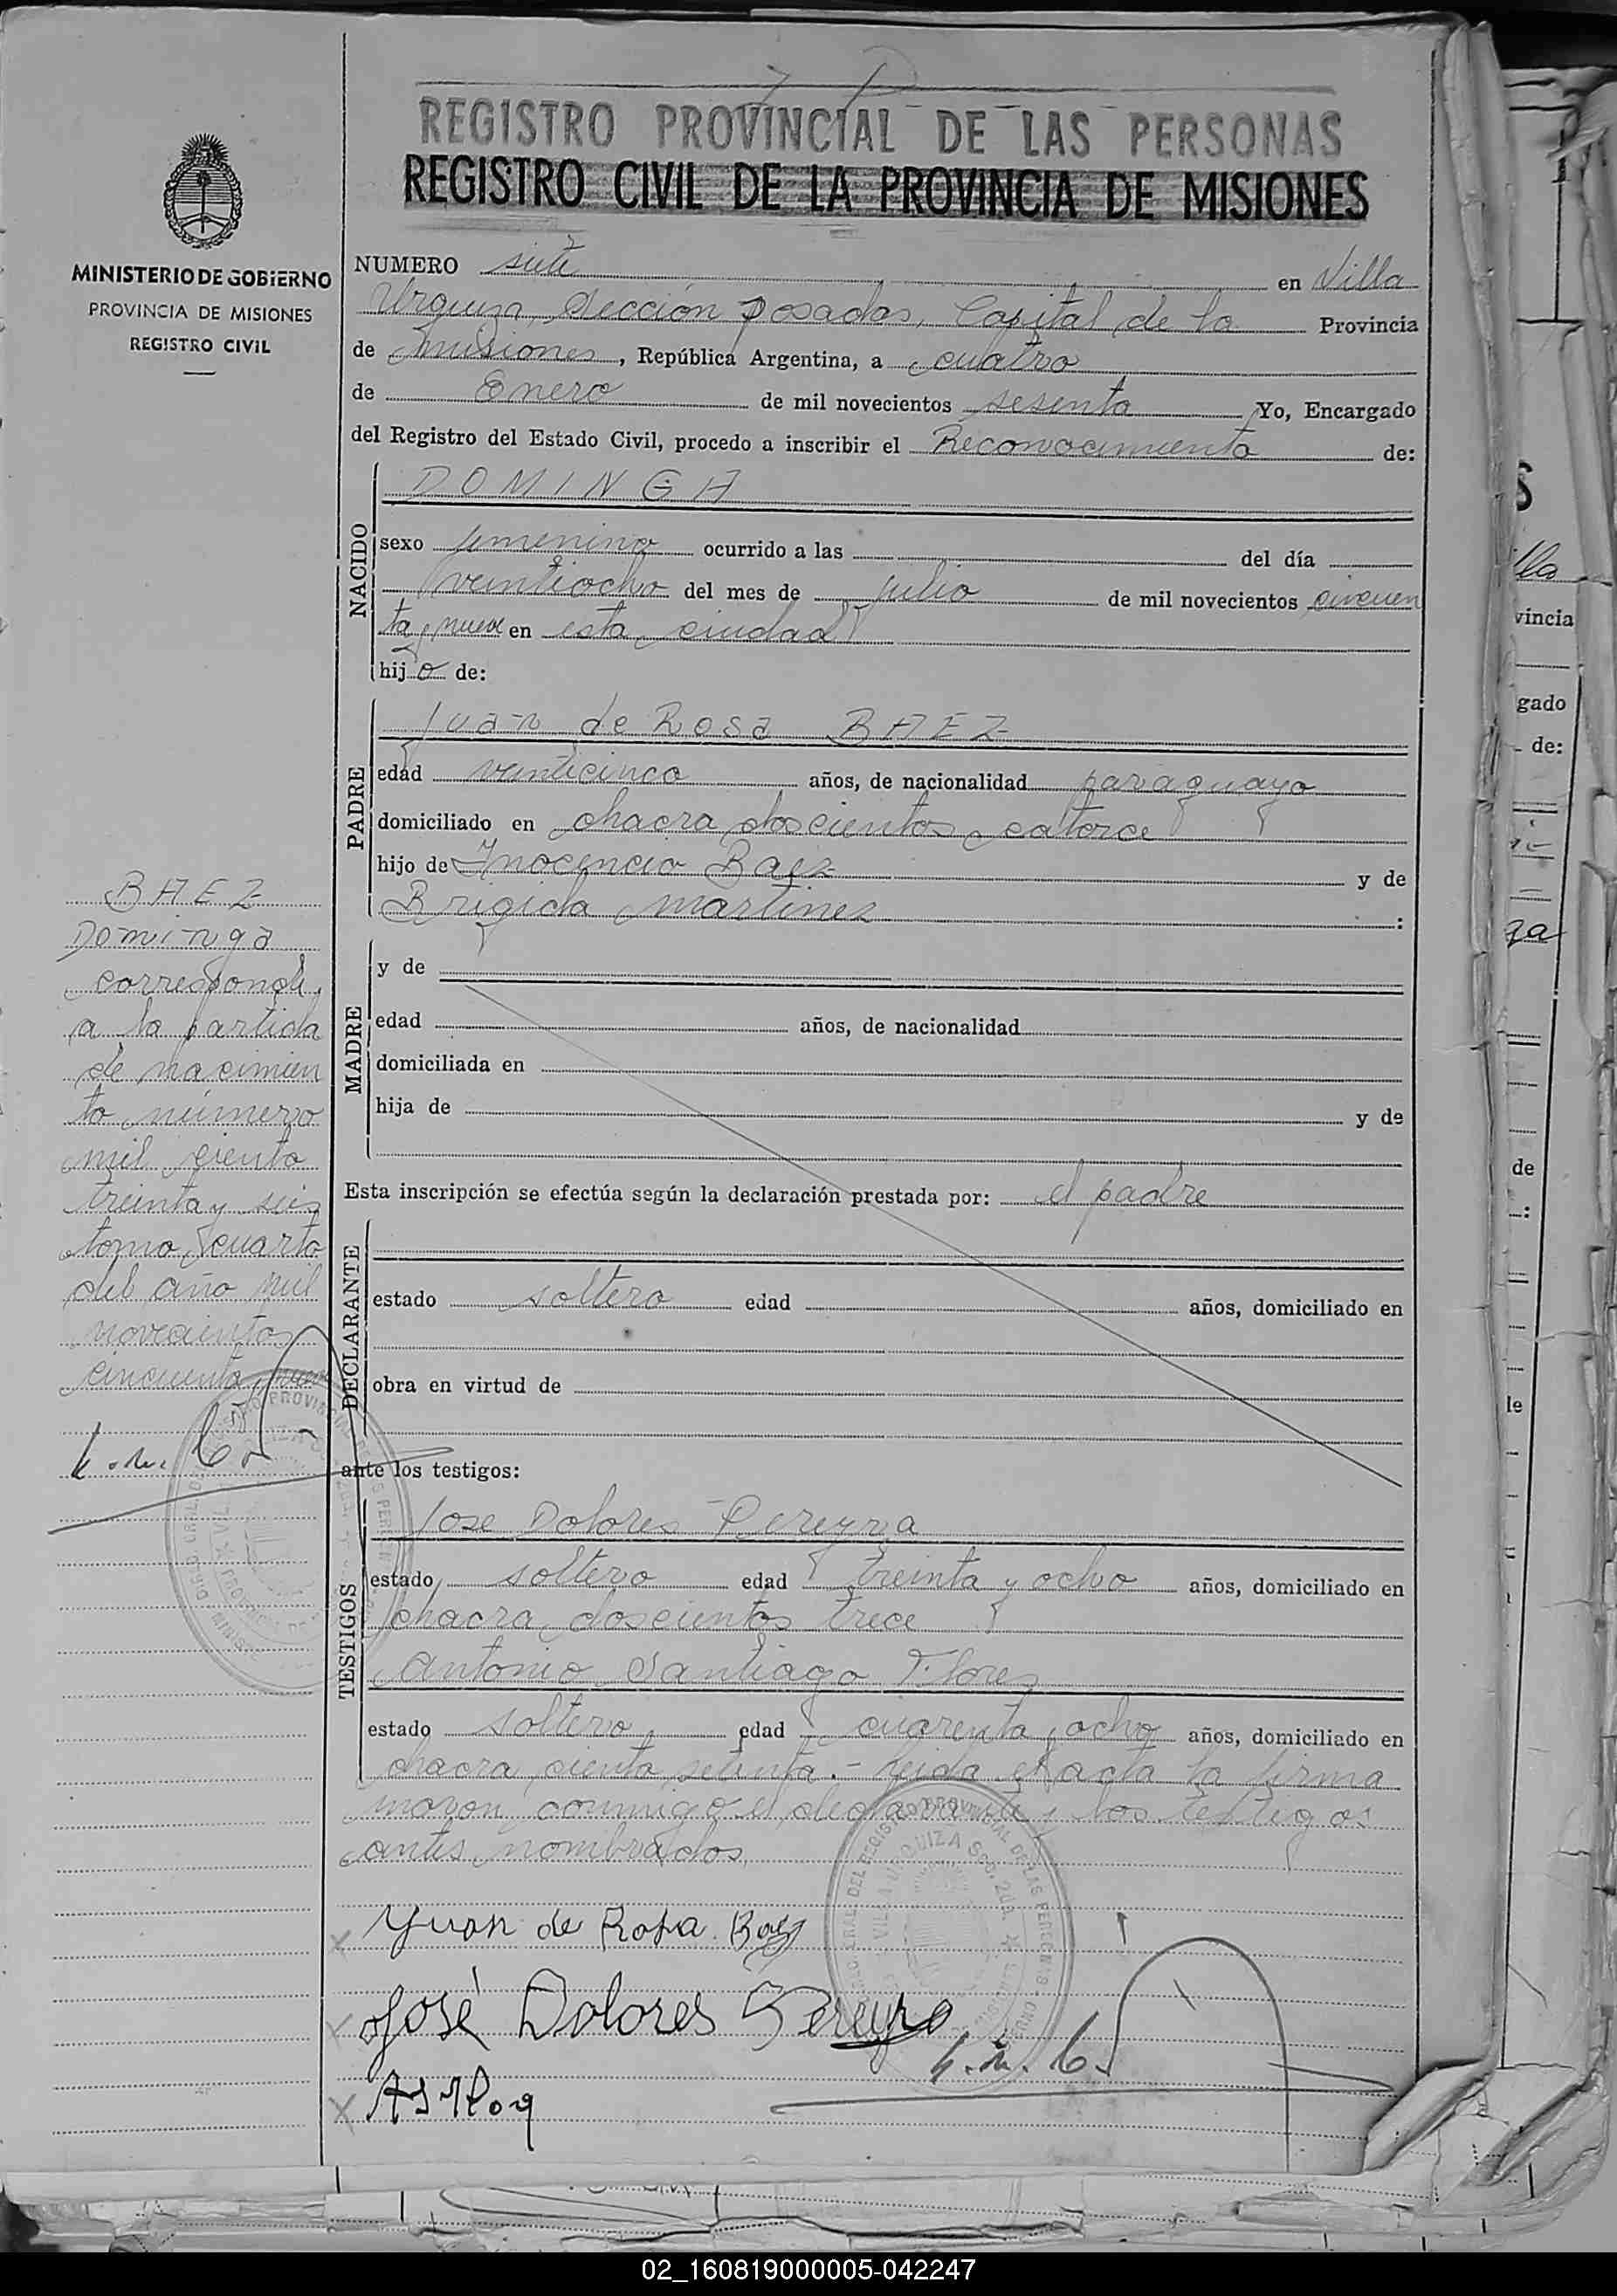 REGISTRO PROVINCIAL DE LAS PERSONAS
REGISTRO CIVIL DE LA PROVINCIA DE MISIONES
MINISTERIO DE GOBIERNO
PROVINCIA DE MISIONES
REGISTRO CIVIL
NUMERO siete en Villa
Urquiza, Sección posadas, Capital de la Provincia
de Misiones, República Argentina, a cuatro
de Enero de mil novecientos sesenta Yo, Encargado
del Registro del Estado Civil, procedo a inscribir el Reconocimiento de:
NACIDO
DOMINGA
sexo femenino ocurrido a las del día
veintiocho del mes de julio de mil novecientos cincuen
ta y nueve en esta ciudad
hij o de:
PADRE
Juan de Rosa BAEZ
edad veinticinco años, de nacionalidad paraguayo
domiciliado en chacra doscientos catorce
hijo de Inocencio Baez y de
Brigida Martinez :
MADRE
y de
edad años, de nacionalidad
domiciliada en
hija de y de
Esta inscripción se efectúa según la declaración prestada por: el padre
DECLARANTE
estado soltero edad años, domiciliado en
obra en virtud de
ante los testigos:
TESTIGOS
Jose Dolores Pereyra
estado soltero edad treinta y ocho años, domiciliado en
chacra doscientos trece
Antonio Santiago Flores
estado soltero edad cuarenta y ocho años, domiciliado en
chacra ciento setenta.- Leida el acta la firma
maron conmigo el declarante y los testigos
antes nombrados
Yuan de Rosa Baez
José Dolores Pereyra
BAEZ
Dominga
corresponde
a la partida
de nacimien
to número
mil ciento
treinta y seis
tomo cuarto
del año mil
novecientos
cincuenta y nueve
VILLA URQUIZA Sec. 2da.
02_160819000005-042247